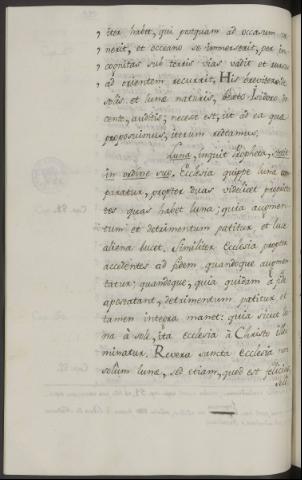 iter habet, qui postquam ad occasum ve
nerit, et occeano se immerserit, per in
cognitas sub terris vias vadit et rursus
ad orientem recurrit. His breviter de
solis et lunæ naturis, Isidoro di
cente, auditis; necest est, ut ad ea quæ
proposuimus, iterum redeamus.
Luna, inquit Propheta, stetit
in ordine suo. Ecclesia quippe lunæ com
paratur, propter duas videlicet proprieta
tes quas habet luna; quia augmen
tum et detrimentum patitur et luce
aliena lucet. Similiter Ecclesia propter
accedentes ad fidem quandoque augmen
tatur; quandoque, quia quidam à fide
apostatant, detrimentum patitur, et
tamen integra manet: quia sicut lu
na à sole, ita ecclesia à Christo illu
minatur. Revera sancta Ecclesia non
solùm lunæ, sed etiam, quod est felicius,
soli